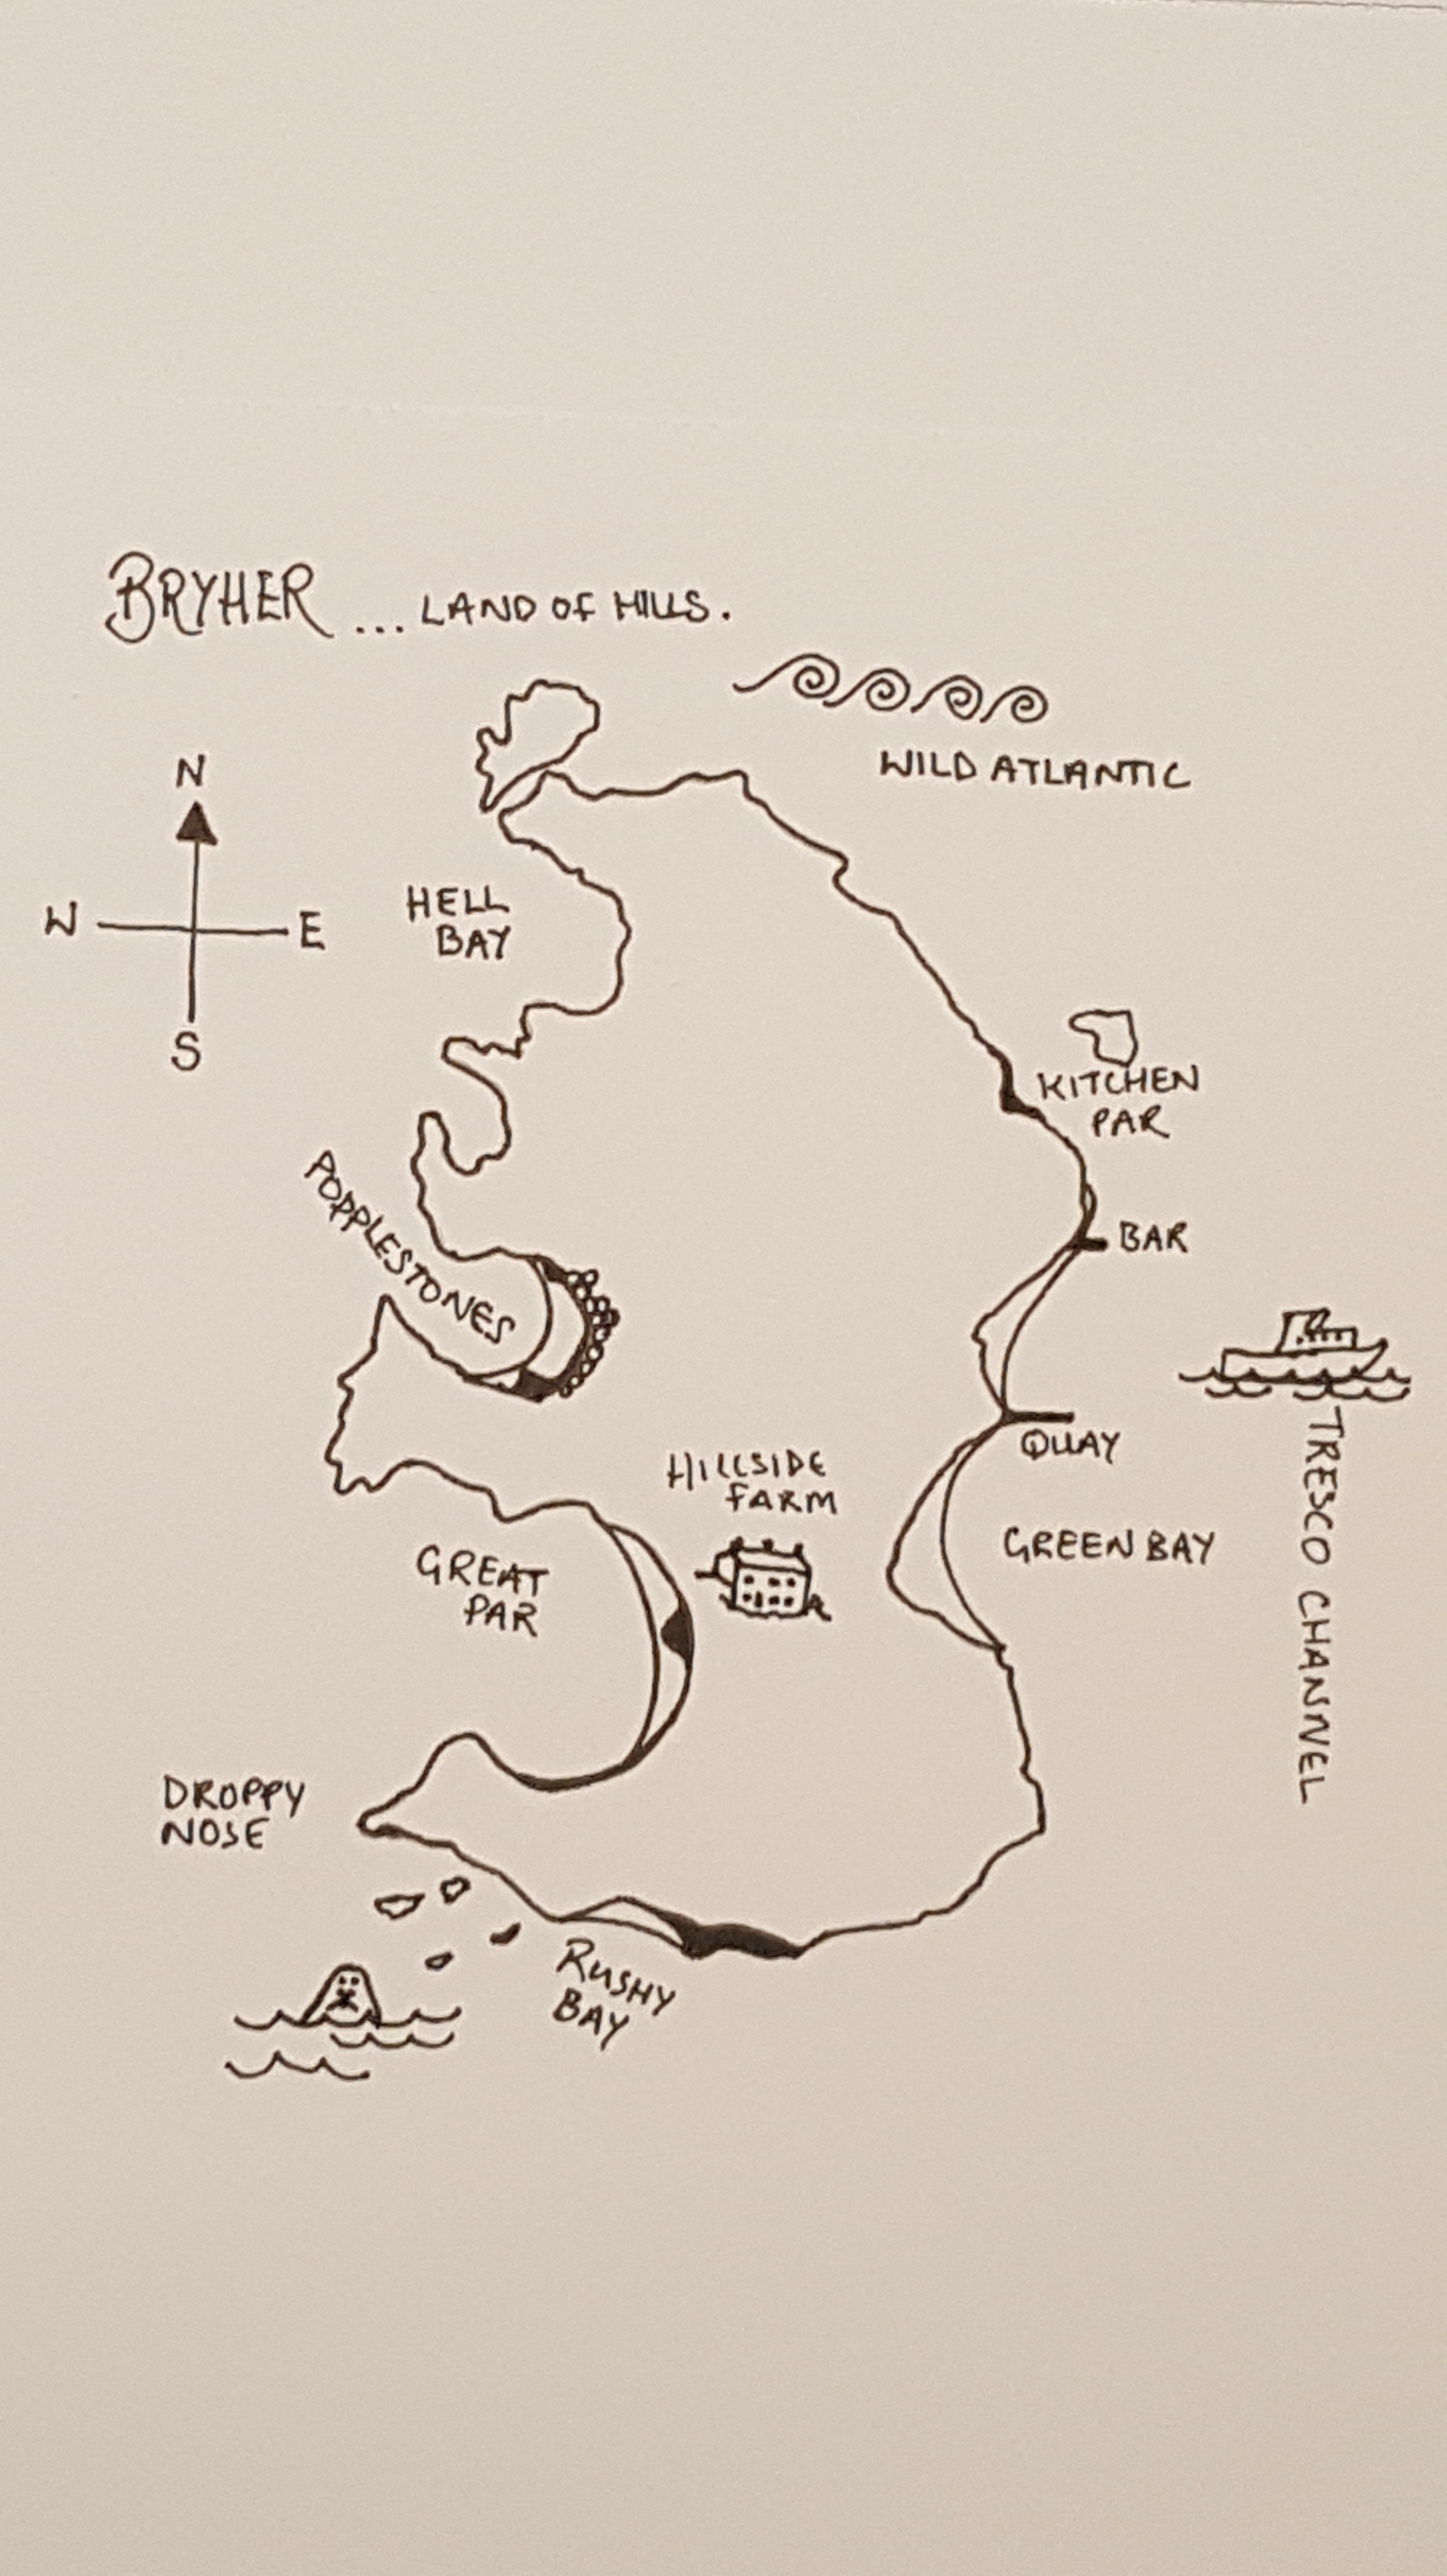 BRYHER ... LAND OF HILLS.
WILD ATLANTIC
N
W
E
S
HELL
BAY
KITCHEN
PAR
POPPLESTONES
BAR
QUAY
HILLSIDE
FARM
GREEN BAY
TRESCO CHANNEL
GREAT
PAR
DROPPY
NOSE
RUSHY
BAY